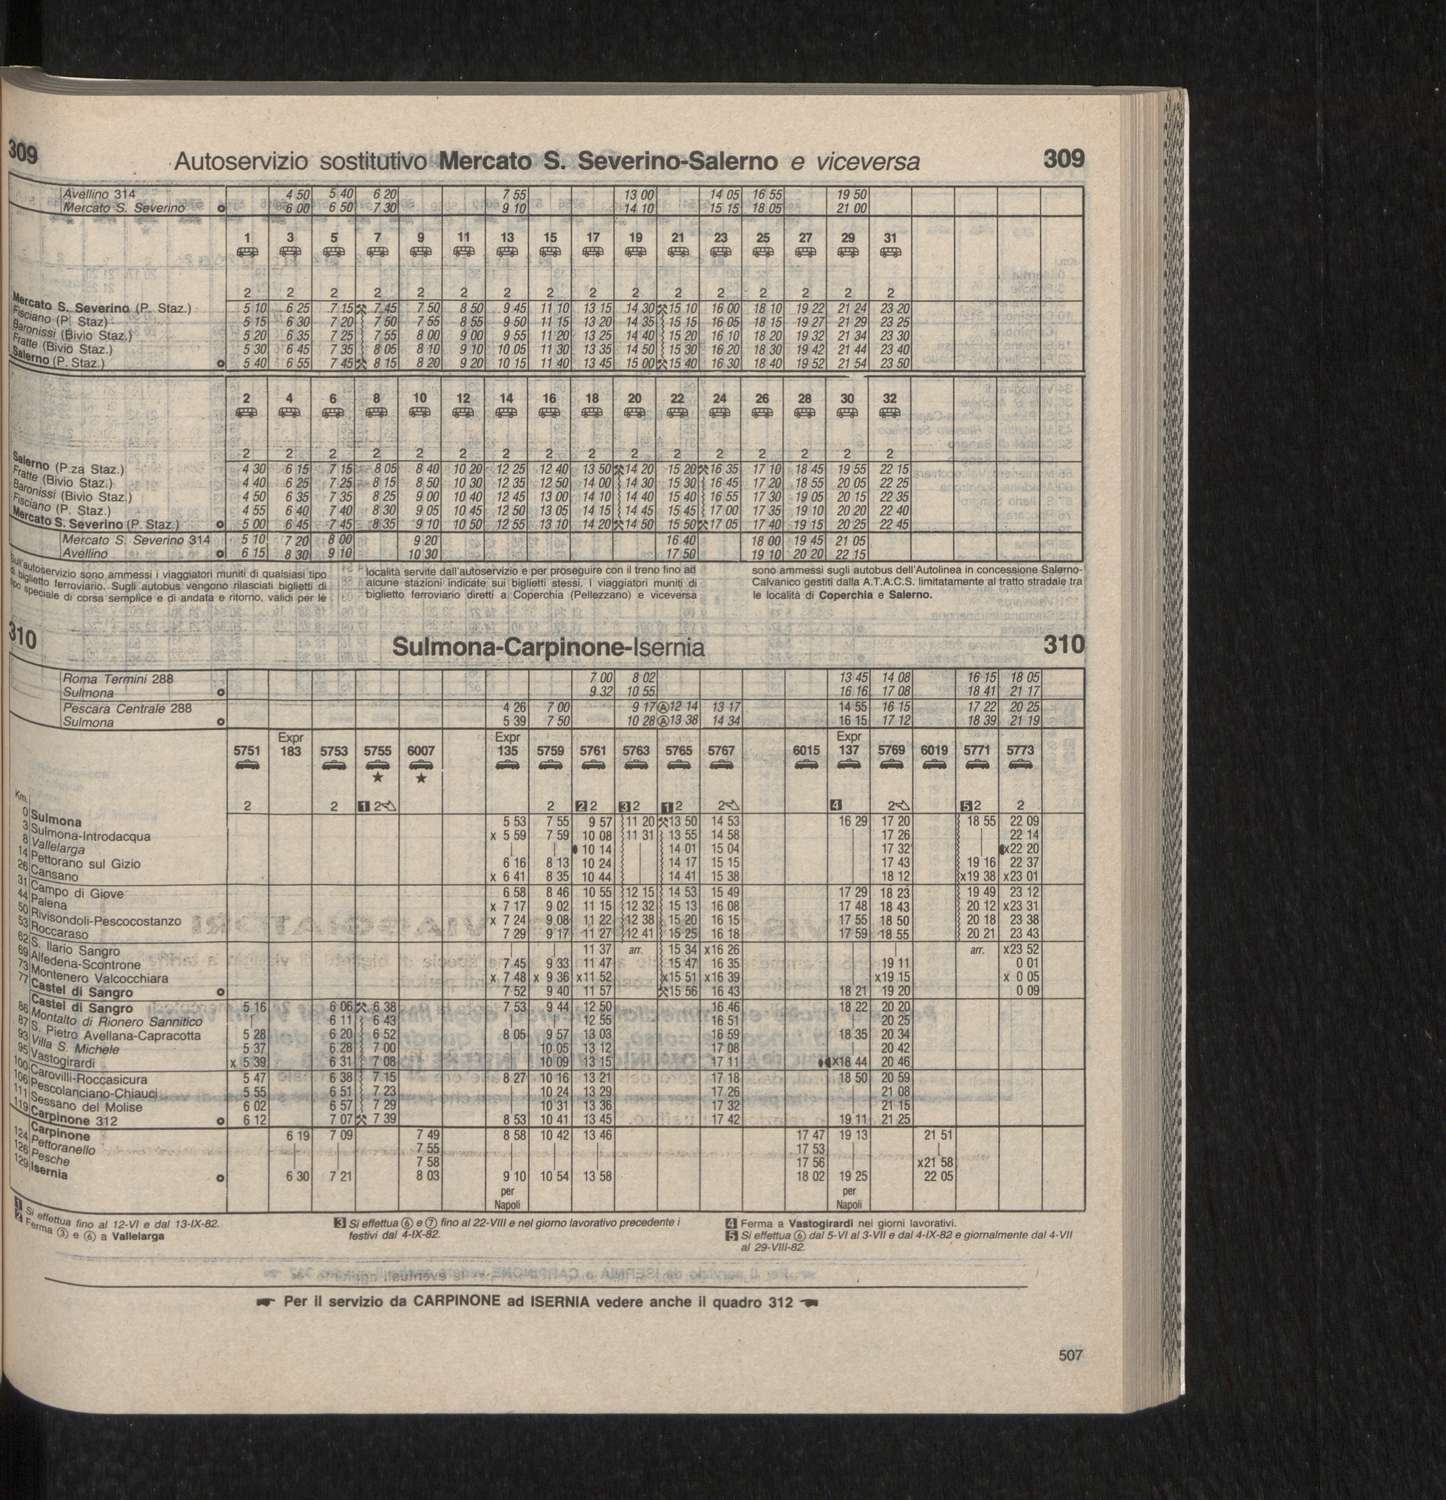 309 Autoservizio sostitutivo Mercato S. Severino-Salerno e viceversa 309
Avellino 314 4 50 5 40 6 20 7 55 13 00 14 05 16 55 19 50
Mercato S. Severino 6 00 6 50 7 30 9 10 14 10 15 15 18 05 21 00
1 3 5 7 9 11 13 15 17 19 21 23 25 27 29 31
2 2 2 2 2 2 2 2 2 2 2 2 2 2 2 2
Mercato S. Severino (P. Staz.) 5 10 6 25 7 15 7 45 7 50 8 50 9 45 11 10 13 15 14 30 15 10 16 00 18 10 19 22 21 24 23 20
Fisciano (P. Staz) 5 15 6 30 7 20 7 50 7 55 8 55 9 50 11 15 13 20 14 35 15 15 16 05 18 15 19 27 21 29 23 25
Baronissi (Bivio Staz.) 5 20 6 35 7 25 7 55 8 00 9 00 9 55 11 20 13 25 14 40 15 20 16 10 18 20 19 32 21 34 23 30
Fratte (Bivio Staz.) 5 30 6 45 7 35 8 05 8 10 9 10 10 05 11 30 13 35 14 50 15 30 16 20 18 30 19 42 21 44 23 40
Salerno (P. Staz.) 5 40 6 55 7 45 8 15 8 20 9 20 10 15 11 40 13 45 15 00 15 40 16 30 18 40 19 52 21 54 23 50
2 4 6 8 10 12 14 16 18 20 22 24 26 28 30 32
2 2 2 2 2 2 2 2 2 2 2 2 2 2 2 2
Salerno (P.za Staz.) 4 30 6 15 7 15 8 05 8 40 10 20 12 25 12 40 13 50 14 20 15 20 16 35 17 10 18 45 19 55 22 15
Fratte (Bivio Staz.) 4 40 6 25 7 25 8 15 8 50 10 30 12 35 12 50 14 00 14 30 15 30 16 45 17 20 18 55 20 05 22 25
Baronissi (Bivio Staz.) 4 50 6 35 7 35 8 25 9 00 10 40 12 45 13 00 14 10 14 40 15 40 16 55 17 30 19 05 20 15 22 35
Fisciano (P. Staz.) 4 55 6 40 7 40 8 30 9 05 10 45 12 50 13 05 14 15 14 45 15 45 17 00 17 35 19 10 20 20 22 40
Mercato S. Severino (P. Staz.) 5 00 6 45 7 45 8 35 9 10 10 50 12 55 13 10 14 20 14 50 15 50 17 05 17 40 19 15 20 25 22 45
Mercato S. Severino 314 5 10 7 20 8 00 9 20 16 40 18 00 19 45 21 05
Avellino 6 15 8 30 9 10 10 30 17 50 19 10 20 20 22 15
Sull'autoservizio sono ammessi i viaggiatori muniti di qualsiasi tipo
di biglietto ferroviario. Sugli autobus vengono rilasciati biglietti di
tipo speciale di corsa semplice e di andata e ritorno, validi per le
località servite dall'autoservizio e per proseguire con il treno fino ad
alcune stazioni indicate sui biglietti stessi. I viaggiatori muniti di
biglietto ferroviario diretti a Coperchia (Pellezzano) e viceversa
sono ammessi sugli autobus dell'Autolinea in concessione Salerno-
Calvanico gestiti dalla A.T.A.C.S. limitatamente al tratto stradale tra
le località di Coperchia e Salerno.
310 Sulmona-Carpinone-Isernia 310
Roma Termini 288 7 00 8 02 13 45 14 08 16 15 18 05
Sulmona 9 32 10 55 16 16 17 08 18 41 21 17
Pescara Centrale 288 4 26 7 00 9 17 Ⓐ12 14 13 17 14 55 16 15 17 22 20 25
Sulmona 5 39 7 50 10 28 Ⓐ13 38 14 34 16 15 17 12 18 39 21 19
5751 Expr 183 5753 5755 6007 Expr 135 5759 5761 5763 5765 5767 6015 Expr 137 5769 6019 5771 5773
★ ★
Km. 2 2 1 2 2 2 2 3 2 1 2 2 4 2 5 2 2
0 Sulmona 5 53 7 55 9 57 11 20 13 50 14 53 16 29 17 20 18 55 22 09
3 Sulmona-Introdacqua x 5 59 7 59 10 08 11 31 13 55 14 58 | 17 26 | 22 14
8 Vallelarga | | 10 14 | 14 01 15 04 | 17 32 | x22 20
14 Pettorano sul Gizio 6 16 8 13 10 24 | 14 17 15 15 17 43 19 16 22 37
26 Cansano x 6 41 8 35 10 44 | 14 41 15 38 18 12 x19 38 x23 01
31 Campo di Giove 6 58 8 46 10 55 12 15 14 53 15 49 17 29 18 23 19 49 23 12
44 Palena x 7 17 9 02 11 15 12 32 15 13 16 08 17 48 18 43 20 12 x23 31
50 Rivisondoli-Pescocostanzo x 7 24 9 08 11 22 12 38 15 20 16 15 17 55 18 50 20 18 23 38
53 Roccaraso 7 29 9 17 11 27 12 41 15 25 16 18 17 59 18 55 20 21 23 43
62 S. Ilario Sangro | | 11 37 arr. 15 34 x16 26 | | arr. x23 52
69 Alfedena-Scontrone 7 45 9 33 11 47 15 47 16 35 | 19 11 0 01
73 Montenero Valcocchiara x 7 48 x 9 36 x11 52 x15 51 x16 39 | x19 15 x 0 05
77 Castel di Sangro 7 52 9 40 11 57 15 56 16 43 18 21 19 20 0 09
Castel di Sangro 5 16 6 06 6 38 7 53 9 44 12 50 16 46 18 22 20 20
86 Montalto di Rionero Sannitico | 6 11 6 43 | | 12 55 16 51 | 20 25
87 S. Pietro Avellana-Capracotta 5 28 6 20 6 52 8 05 9 57 13 03 16 59 18 35 20 34
93 Villa S. Michele 5 37 6 28 7 00 | 10 05 13 12 17 08 | 20 42
95 Vastogirardi x 5 39 6 31 7 08 | 10 09 13 15 17 11 x18 44 20 46
100 Carovilli-Roccasicura 5 47 6 38 7 15 8 27 10 16 13 21 17 18 18 50 20 59
106 Pescolanciano-Chiauci 5 55 6 51 7 23 | 10 24 13 29 17 26 | 21 08
111 Sessano del Molise 6 02 6 57 7 29 | 10 31 13 36 17 32 | 21 15
119 Carpinone 312 6 12 7 07 7 39 8 53 10 41 13 45 17 42 19 11 21 25
Carpinone 6 19 7 09 7 49 8 58 10 42 13 46 17 47 19 13 21 51
124 Pettoranello | | 7 55 | | | 17 53 | |
126 Pesche | | 7 58 | | | 17 56 | x21 58
129 Isernia 6 30 7 21 8 03 9 10 10 54 13 58 18 02 19 25 22 05
per Napoli per Napoli
1 Si effettua fino al 12-VI e dal 13-IX-82.
2 Ferma ③ e ⑥ a Vallelarga
3 Si effettua ⑥ e ⑦ fino al 22-VIII e nel giorno lavorativo precedente i
festivi dal 4-IX-82.
4 Ferma a Vastogirardi nei giorni lavorativi.
5 Si effettua ⑥ dal 5-VI al 3-VII e dal 4-IX-82 e giornalmente dal 4-VII
al 29-VIII-82.
Per il servizio da CARPINONE ad ISERNIA vedere anche il quadro 312
507